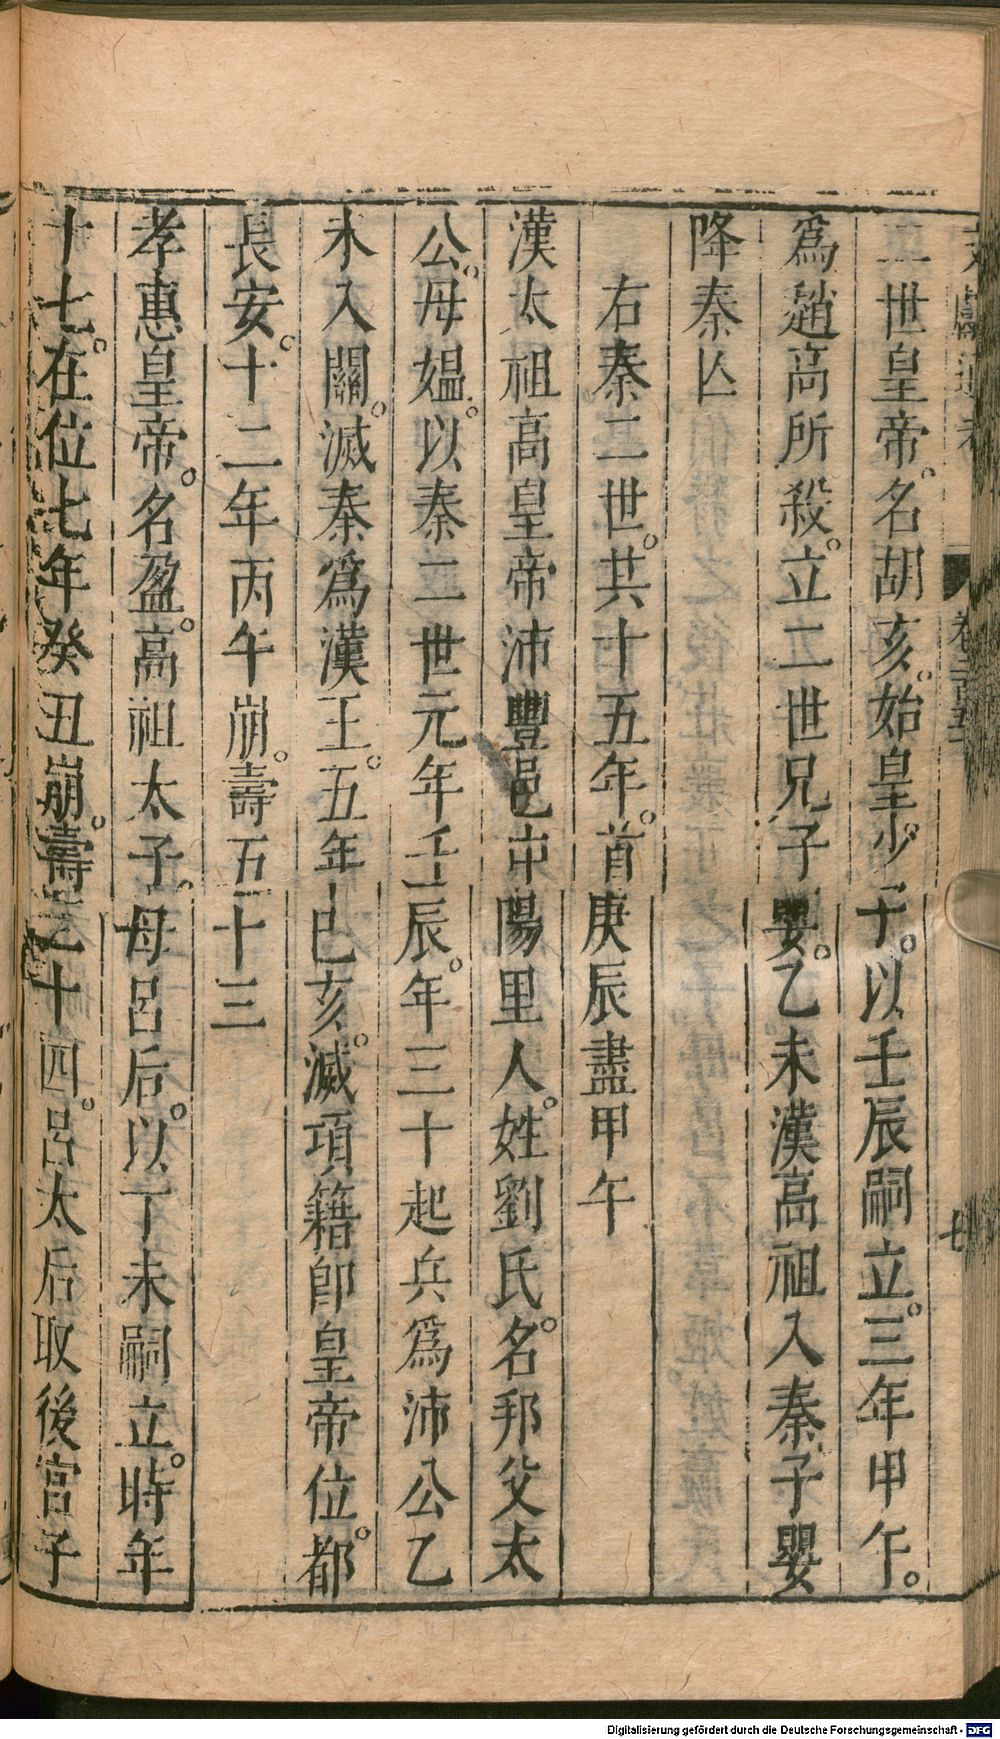 二世皇帝。名胡亥。始皇少子。以壬辰嗣立。三年甲午。
爲趙高所殺。立二世兄子嬰。乙未漢高祖入秦子嬰
降秦亾
右秦二世。共十五年。首庚辰盡甲午
漢太祖高皇帝沛豐邑中陽里人。姓劉氏。名邦父太
公。母媪。以秦二世元年壬辰。年三十起兵爲沛公乙
未入關。滅秦爲漢王。五年已亥。滅項籍卽皇帝位。都
長安。十二年丙午崩。壽五十三
孝惠皇帝。名盈。高祖太子。母呂后。以丁未嗣立。時年
十七。在位七年癸丑崩。壽二十四。呂太后取後宮子
七
Digitalisierung gefördert durch die Deutsche Forschungsgemeinschaft - DFG